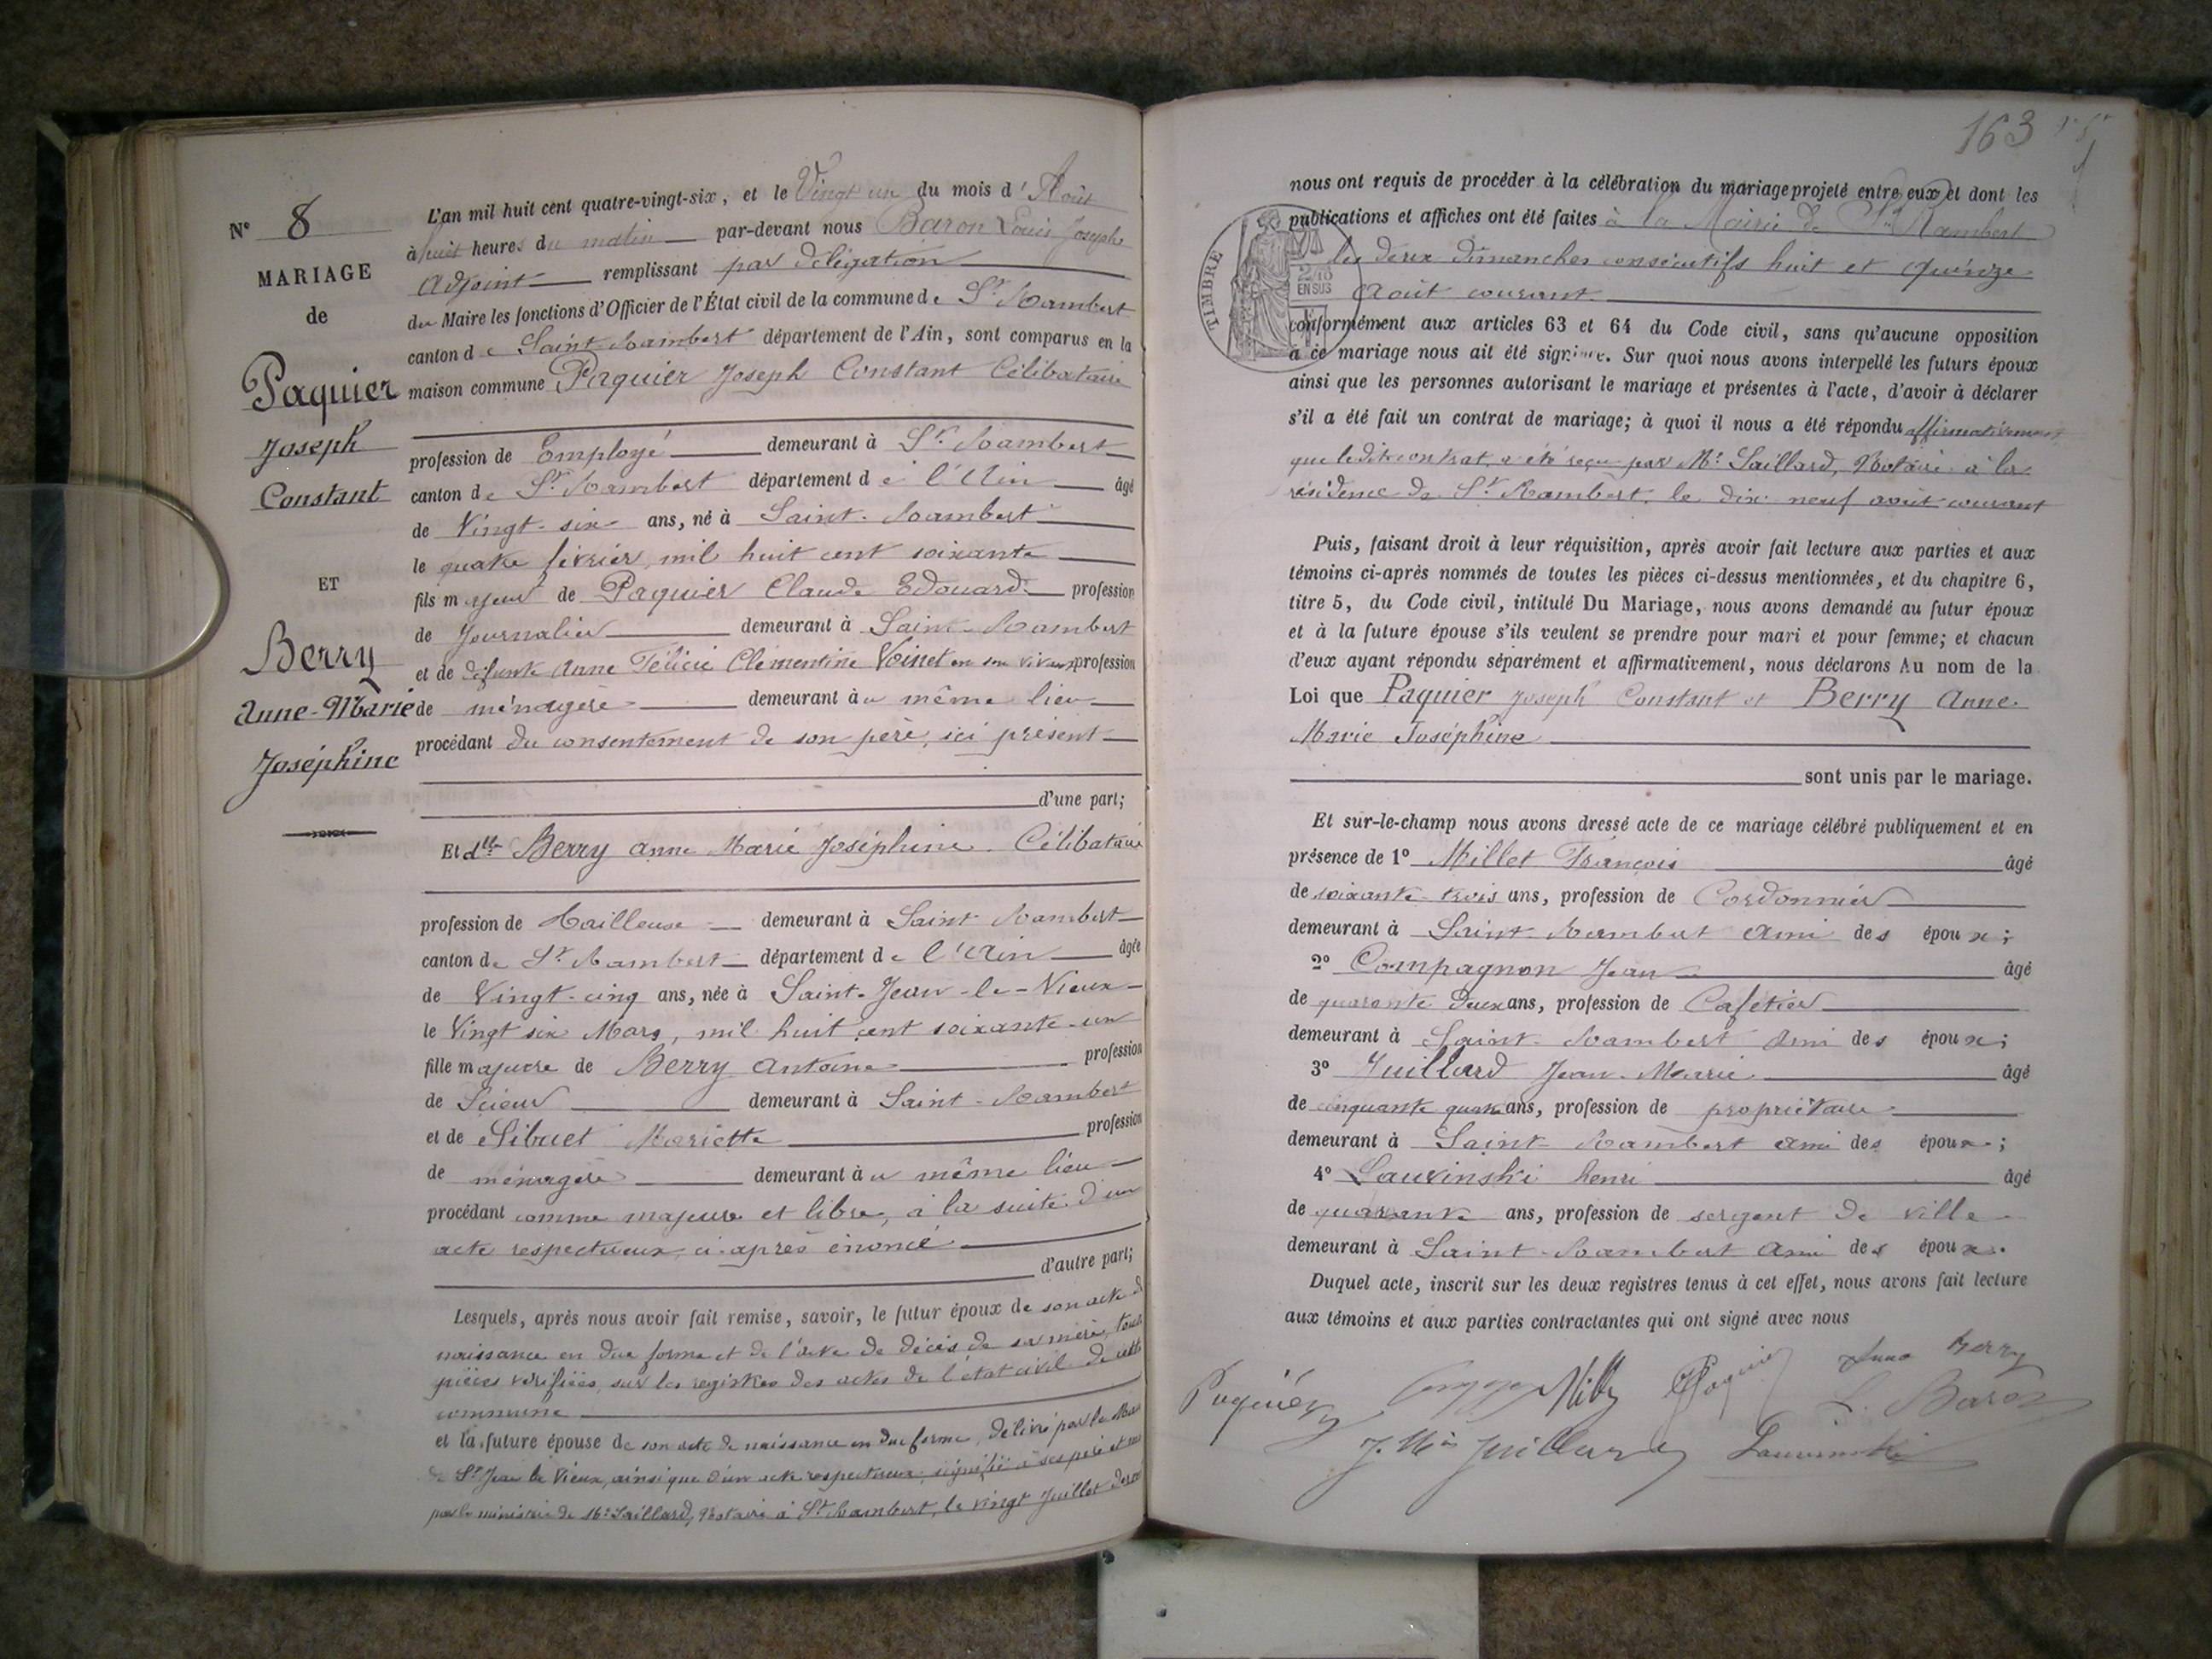 N° 8
MARIAGE
de
Paquier
Joseph
Constant
ET
Berry
Anne-Marie
Joséphine
L'an mil huit cent quatre-vingt-six, et le Vingt un du mois d'Août
à huit heures du matin par-devant nous Baron Louis Joseph
Adjoint remplissant par délégation
du Maire les fonctions d'Officier de l'État civil de la commune de St Rambert
canton de Saint-Rambert département de l'Ain, sont comparus en la
maison commune Paquier Joseph Constant Célibataire
profession de Employé demeurant à St Rambert
canton de St Rambert département de l'Ain âgé
de Vingt-six ans, né à Saint-Rambert
le quatre février, mil huit cent soixante
fils majeur de Paquier Claude Edouard profession
de Journalier demeurant à Saint-Rambert
et de défunte Anne Félicie Clémentine Voinet en son vivant profession
de ménagère demeurant au même lieu
procédant du consentement de son père, ici présent
d'une part;
Et dlle Berry Anne Marie Joséphine. Célibataire
profession de tailleuse demeurant à Saint-Rambert
canton de St Rambert département de l'Ain âgée
de Vingt-cinq ans, née à Saint-Jean-le-Vieux
le Vingt six Mars, mil huit cent soixante-un
fille majeure de Berry Antoine profession
de Scieur demeurant à Saint-Rambert
et de Sibuet Mariette profession
de ménagère demeurant au même lieu
procédant comme majeure et libre, à la suite d'un
acte respectueux ci-après énoncé
d'autre part;
Lesquels, après nous avoir fait remise, savoir, le futur époux de son acte de
naissance en due forme et de l'acte de décès de sa mère, tous
pièces vérifiées, sur les registres des actes de l'état civil de cette
commune
et la future épouse de son acte de naissance en due forme, délivré par le Maire
de St Jean le Vieux, ainsi que d'un acte respectueux, signifié à ses père et mère
par le ministère de Me Saillard, Notaire à St Rambert, le vingt Juillet dernier
163
nous ont requis de procéder à la célébration du mariage projeté entre eux et dont les
publications et affiches ont été faites à la Mairie de St Rambert
les deux dimanches consécutifs huit et quinze
Août courant
TIMBRE
EN SUS
conformément aux articles 63 et 64 du Code civil, sans qu'aucune opposition
à ce mariage nous ait été signifiée. Sur quoi nous avons interpellé les futurs époux
ainsi que les personnes autorisant le mariage et présentes à l'acte, d'avoir à déclarer
s'il a été fait un contrat de mariage; à quoi il nous a été répondu affirmativement
que ledit contrat a été reçu par Me Saillard, Notaire à la
résidence de St Rambert, le dix-neuf août courant
Puis, faisant droit à leur réquisition, après avoir fait lecture aux parties et aux
témoins ci-après nommés de toutes les pièces ci-dessus mentionnées, et du chapitre 6,
titre 5, du Code civil, intitulé Du Mariage, nous avons demandé au futur époux
et à la future épouse s'ils veulent se prendre pour mari et pour femme; et chacun
d'eux ayant répondu séparément et affirmativement, nous déclarons Au nom de la
Loi que Paquier Joseph Constant et Berry Anne-
Marie Joséphine
sont unis par le mariage.
Et sur-le-champ nous avons dressé acte de ce mariage célébré publiquement et en
présence de 1° Millet François âgé
de soixante-trois ans, profession de Cordonnier
demeurant à Saint-Rambert ami des époux;
2° Compagnon Jean âgé
de quarante deux ans, profession de Cafetier
demeurant à Saint-Rambert ami des époux;
3° Juillard Jean-Marie âgé
de cinquante quatre ans, profession de propriétaire
demeurant à Saint-Rambert ami des époux;
4° Lauvinski henri âgé
de quarante ans, profession de sergent de ville
demeurant à Saint-Rambert ami des époux.
Duquel acte, inscrit sur les deux registres tenus à cet effet, nous avons fait lecture
aux témoins et aux parties contractantes qui ont signé avec nous
Paquier Paquier Anna Berry
L. Baron
J. Min Juillard Lauvinski